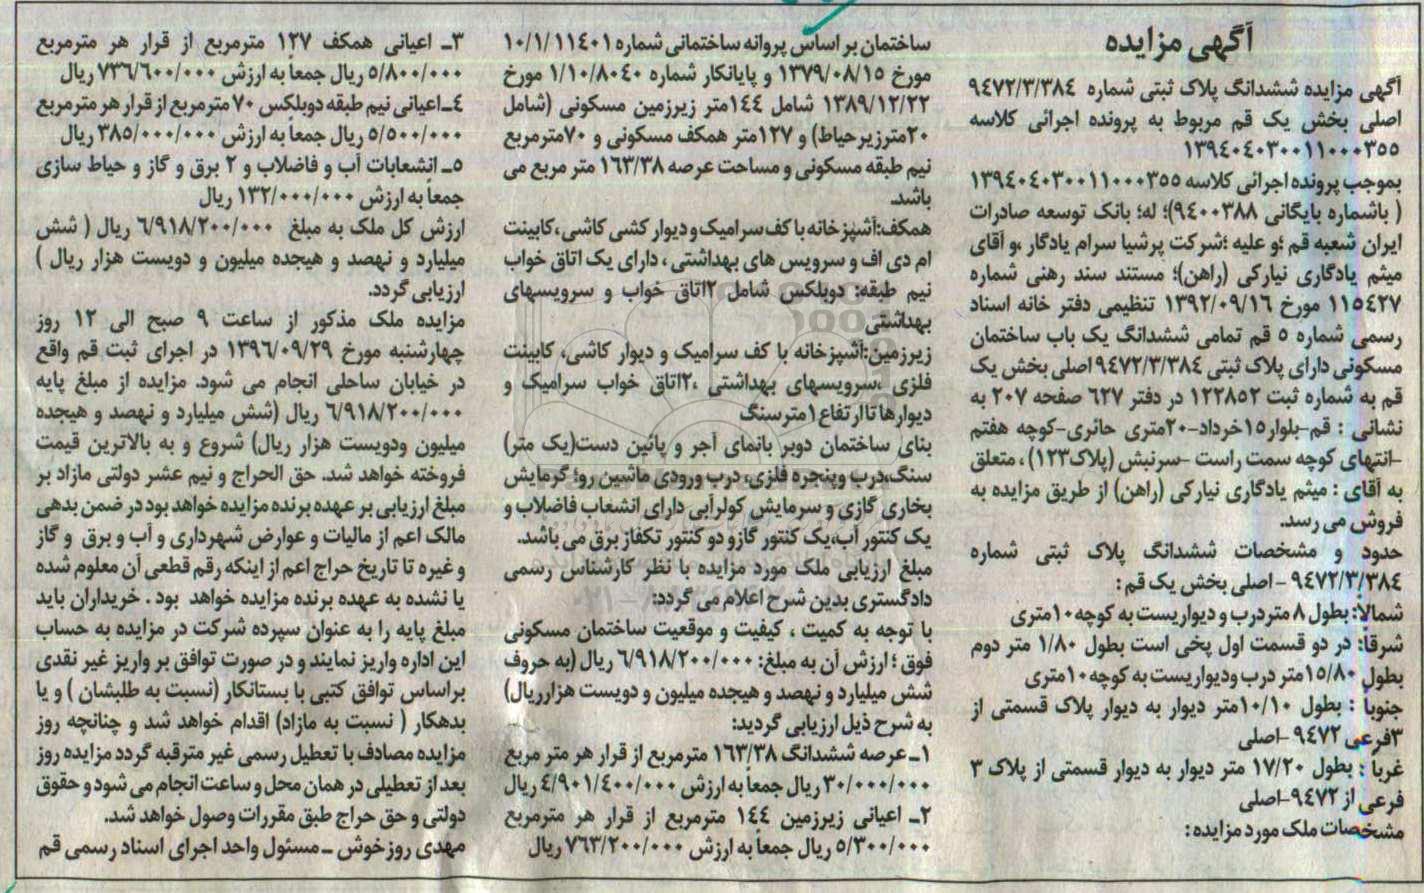 آگهی مزایده
آگهی مزایده ششدانگ پلاک ثبتی شماره ۹٤۷۲/۳/۳۸٤
اصلی بخش یک قم مربوط به پرونده اجرائی کلاسه
۱۳۹٤۰٤۰۳۰۰۱۱۰۰۰۳۵۵
بموجب پرونده اجرائی کلاسه ۱۳۹٤۰٤۰۳۰۰۱۱۰۰۰۳۵۵
( باشماره بایگانی ۹٤۰۰۳۸۸)؛ له؛ بانک توسعه صادرات
ایران شعبه قم ؛و علیه ؛شرکت پرشیا سرام یادگار ،و آقای
میثم یادگاری نیارکی (راهن)؛ مستند سند رهنی شماره
۱۱۵٤۲۷ مورخ ۱۳۹۲/۰۹/۱۶ تنظیمی دفتر خانه اسناد
رسمی شماره ۵ قم تمامی ششدانگ یک باب ساختمان
مسکونی دارای پلاک ثبتی ۹٤۷۲/۳/۳۸٤ اصلی بخش یک
قم به شماره ثبت ۱۲۲۸۵۲ در دفتر ۶۲۷ صفحه ۲۰۷ به
نشانی : قم-بلوار۱۵خرداد-۲۰متری حائری-کوچه هفتم
-انتهای کوچه سمت راست -سرنبش (پلاک۱۲۳) ، متعلق
به آقای : میثم یادگاری نیارکی (راهن) از طریق مزایده به
فروش می رسد.
حدود و مشخصات ششدانگ پلاک ثبتی شماره
۹٤۷۲/۳/۳۸٤ - اصلی بخش یک قم :
شمالا: بطول ۸ متردرب و دیواریست به کوچه۱۰متری
شرقا: در دو قسمت اول پخی است بطول ۱/۸۰ متر دوم
بطول ۱۵/۸۰متر درب ودیواریست به کوچه۱۰متری
جنوبا : بطول ۱۰/۱۰متر دیوار به دیوار پلاک قسمتی از
۳فرعی ۹٤۷۲ -اصلی
غربا : بطول ۱۷/۲۰ متر دیوار به دیوار قسمتی از پلاک ۳
فرعی از ۹٤۷۲-اصلی
مشخصات ملک مورد مزایده :
ساختمان بر اساس پروانه ساختمانی شماره ۱۰/۱/۱۱٤۰۱
مورخ ۱۳۷۹/۰۸/۱۵ و پایانکار شماره ۱/۱۰/۸۰٤۰ مورخ
۱۳۸۹/۱۲/۲۲ شامل ۱٤٤متر زیرزمین مسکونی (شامل
۲۰مترزیرحیاط) و ۱۲۷متر همکف مسکونی و ۷۰مترمربع
نیم طبقه مسکونی و مساحت عرصه ۱۶۳/۳۸ متر مربع می
باشد.
همکف:آشپزخانه با کف سرامیک و دیوار کشی کاشی، کابینت
ام دی اف و سرویس های بهداشتی ، دارای یک اتاق خواب
نیم طبقه: دوبلکس شامل ۲اتاق خواب و سرویسهای
بهداشتی
زیرزمین:آشپزخانه با کف سرامیک و دیوار کاشی، کابینت
فلزی ،سرویسهای بهداشتی ،۲اتاق خواب سرامیک و
دیوارها تا ارتفاع۱مترسنگ
بنای ساختمان دوبر بانمای آجر و پائین دست(یک متر)
سنگ،درب وپنجره فلزی، درب ورودی ماشین رو؛ گرمایش
بخاری گازی و سرمایش کولرآبی دارای انشعاب فاضلاب و
یک کنتور آب،یک کنتور گازو دو کنتور تکفاز برق می باشد.
مبلغ ارزیابی ملک مورد مزایده با نظر کارشناس رسمی
دادگستری بدین شرح اعلام می گردد:
با توجه به کمیت ، کیفیت و موقعیت ساختمان مسکونی
فوق ؛ ارزش آن به مبلغ: ۶/۹۱۸/۲۰۰/۰۰۰ ریال (به حروف
شش میلیارد و نهصد و هیجده میلیون و دویست هزارریال)
به شرح ذیل ارزیابی گردید:
۱ـ عرصه ششدانگ ۱۶۳/۳۸ مترمربع از قرار هر متر مربع
۳۰/۰۰۰/۰۰۰ ریال جمعا به ارزش ٤/۹۰۱/٤۰۰/۰۰۰ ریال
۲ـ اعیانی زیرزمین ۱٤٤ مترمربع از قرار هر مترمربع
۵/۳۰۰/۰۰۰ ریال جمعاً به ارزش ۷۶۳/۲۰۰/۰۰۰ ریال
۳ـ اعیانی همکف ۱۲۷ مترمربع از قرار هر مترمربع
۵/۸۰۰/۰۰۰ ریال جمعاً به ارزش ۷۳۶/۶۰۰/۰۰۰ ریال
٤ـ اعیانی نیم طبقه دوبلکس ۷۰ مترمربع از قرار هر مترمربع
۵/۵۰۰/۰۰۰ ریال جمعاً به ارزش ۳۸۵/۰۰۰/۰۰۰ ریال
۵ـ انشعابات آب و فاضلاب و ۲ برق و گاز و حیاط سازی
جمعاً به ارزش ۱۳۲/۰۰۰/۰۰۰ ریال
ارزش کل ملک به مبلغ ۶/۹۱۸/۲۰۰/۰۰۰ ریال ( شش
میلیارد و نهصد و هیجده میلیون و دویست هزار ریال )
ارزیابی گردد.
مزایده ملک مذکور از ساعت ۹ صبح الی ۱۲ روز
چهارشنبه مورخ ۱۳۹۶/۰۹/۲۹ در اجرای ثبت قم واقع
در خیابان ساحلی انجام می شود. مزایده از مبلغ پایه
۶/۹۱۸/۲۰۰/۰۰۰ ریال (شش میلیارد و نهصد و هیجده
میلیون ودویست هزار ریال) شروع و به بالاترین قیمت
فروخته خواهد شد. حق الحراج و نیم عشر دولتی مازاد بر
مبلغ ارزیابی بر عهده برنده مزایده خواهد بود در ضمن بدهی
مالک اعم از مالیات و عوارض شهرداری و آب و برق و گاز
و غیره تا تاریخ حراج اعم از اینکه رقم قطعی آن معلوم شده
یا نشده به عهده برنده مزایده خواهد بود . خریداران باید
مبلغ پایه را به عنوان سپرده شرکت در مزایده به حساب
این اداره واریز نمایند و در صورت توافق بر واریز غیر نقدی
براساس توافق کتبی با بستانکار (نسبت به طلبشان ) و یا
بدهکار ( نسبت به مازاد) اقدام خواهد شد و چنانچه روز
مزایده مصادف با تعطیل رسمی غیر مترقبه گردد مزایده روز
بعد از تعطیلی در همان محل و ساعت انجام می شود و حقوق
دولتی و حق حراج طبق مقررات وصول خواهد شد.
مهدی روزخوش ـ مسئول واحد اجرای اسناد رسمی قم